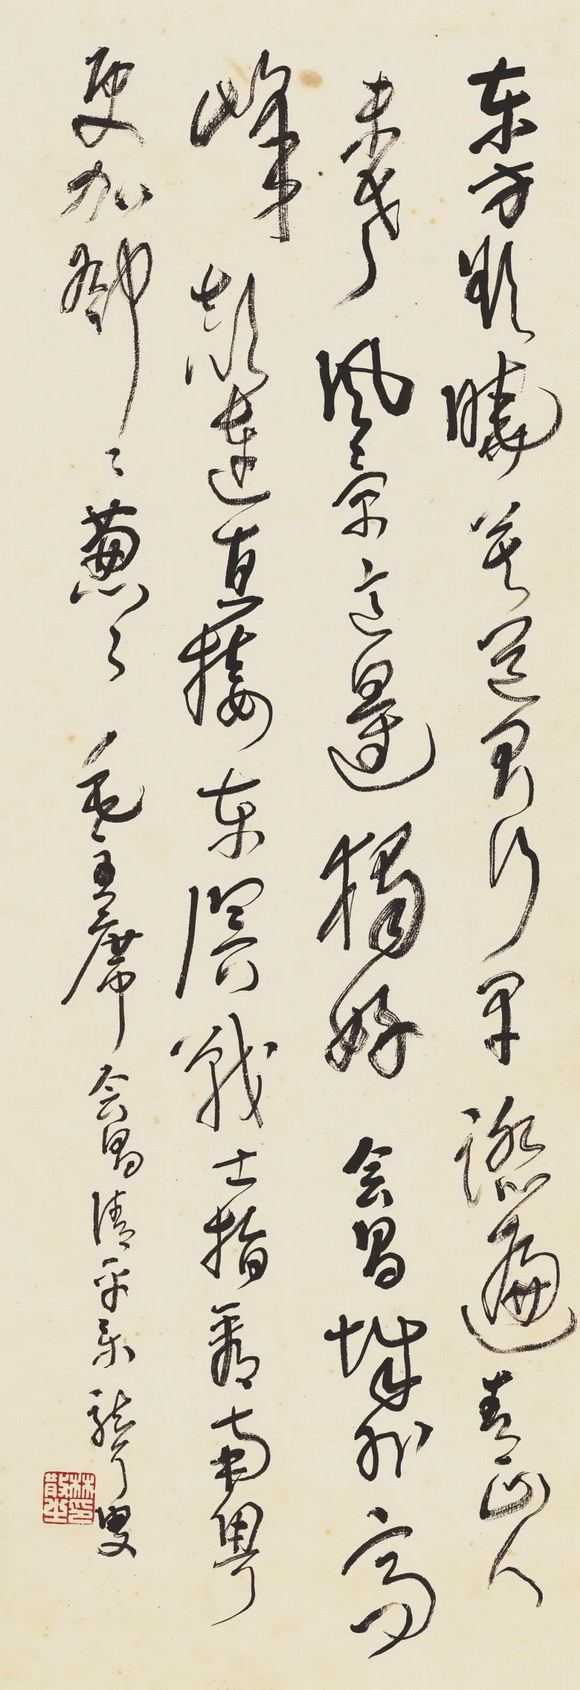 东方欲晓莫道君行早踏遍青山人
未老了风景这边独好会昌城外高
峰颠连直接东溟战士指看南粤
更加郁々葱々毛主席会昌清平乐聋叟
林印散之